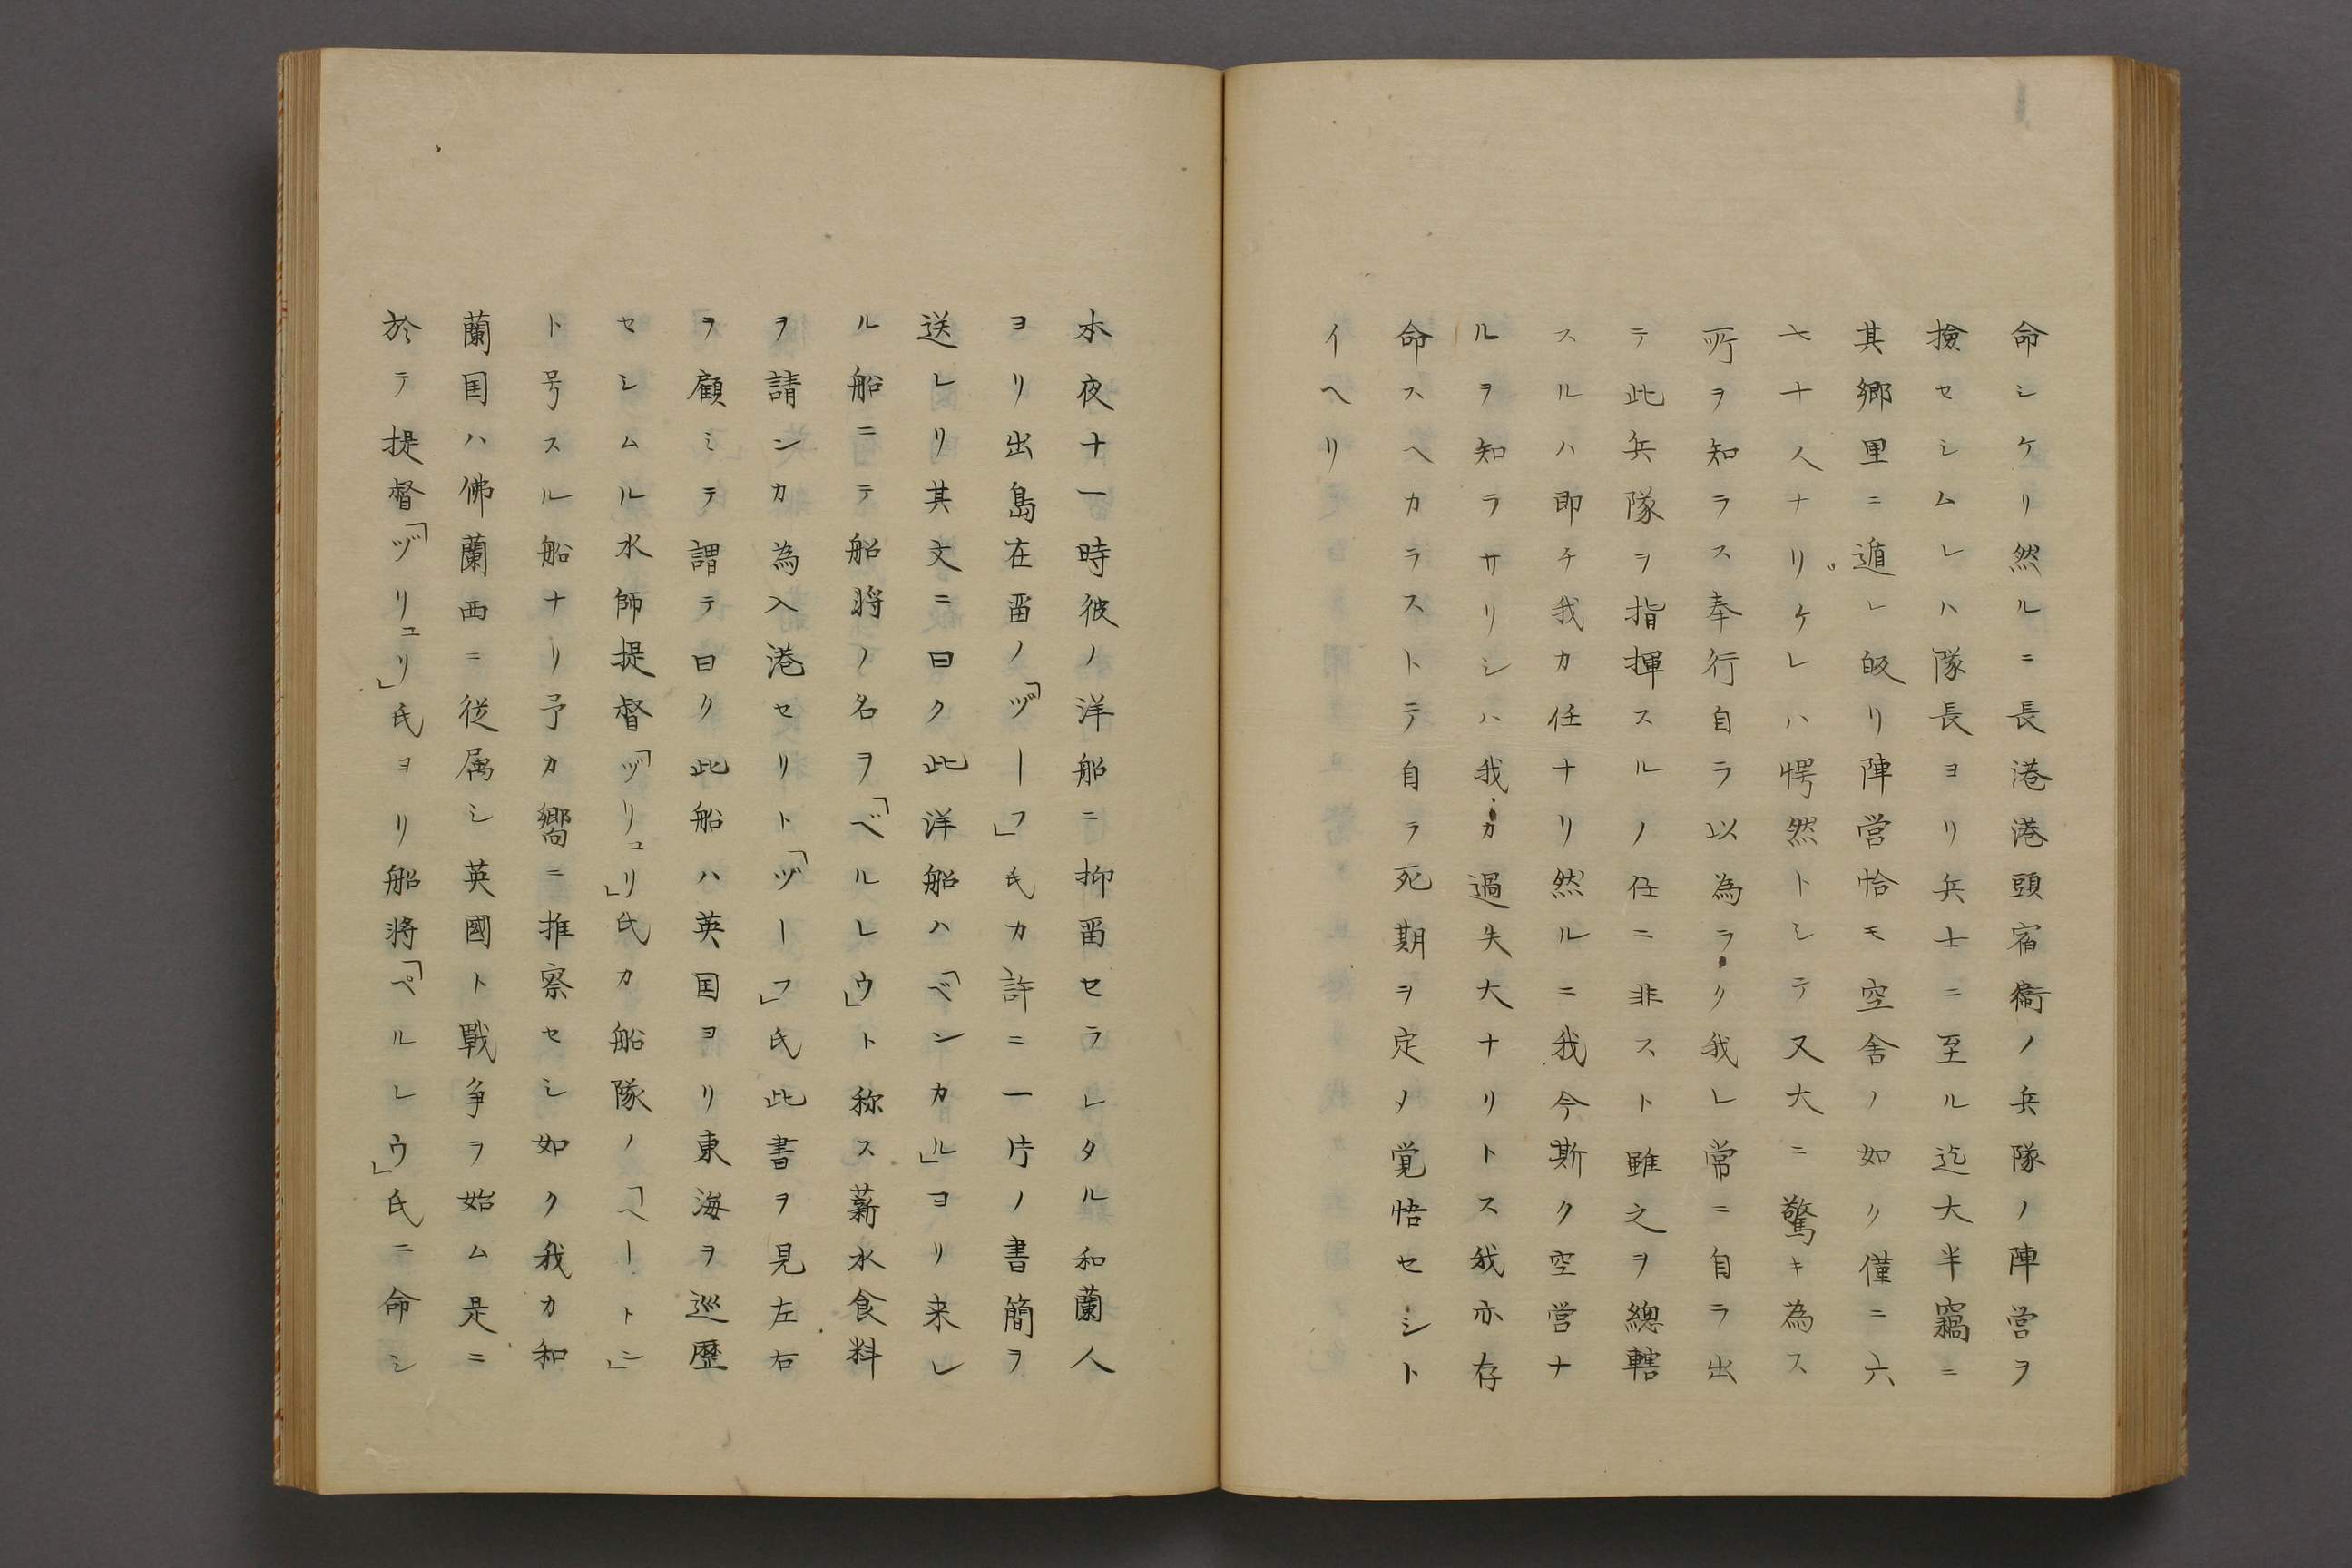 命シケリ然ルニ長港港頭宿衞ノ兵隊ノ陣営ヲ
撿セシムレハ隊長ヨリ兵士ニ至ル迄大半竊ニ
其郷里ニ遁レ皈リ陣営恰モ空舎ノ如ク僅ニ六
七十人ナリケレハ愕然トシテ又大ニ驚キ為ス
所ヲ知ラス奉行自ラ以為ラク我レ常ニ自ラ出
テ此兵隊ヲ指揮スルノ任ニ非スト雖之ヲ總轄
スルハ即チ我カ任ナリ然ルニ我今斯ク空営ナ
ルヲ知ラサリシハ我カ過失大ナリトス我亦存
命スヘカラストテ自ラ死期ヲ定メ覚悟セシト
イヘリ
本夜十一時彼ノ洋船ニ抑畱セラレタル和蘭人
ヨリ出島在畱ノ「ヅーフ」氏カ許ニ一片ノ書簡ヲ
送レリ其文ニ曰ク此洋船ハ「ベンカル」ヨリ来レ
ル船ニテ船将ノ名ヲ「ベルレウ」ト称ス薪水食料
ヲ請ンカ為入港セリト「ヅーフ」氏此書ヲ見左右
ヲ顧ミテ謂テ曰ク此船ハ英国ヨリ東海ヲ巡歴
セシムル水師提督「ヅリュリ」氏カ船隊ノ「ヘートン」
ト号スル船ナリ予カ嚮ニ推察セシ如ク我カ和
蘭国ハ佛蘭西ニ従属シ英國ト戰争ヲ始ム是ニ
於テ提督「ヅリュリ」氏ヨリ船将「ペルレウ」氏ニ命シ